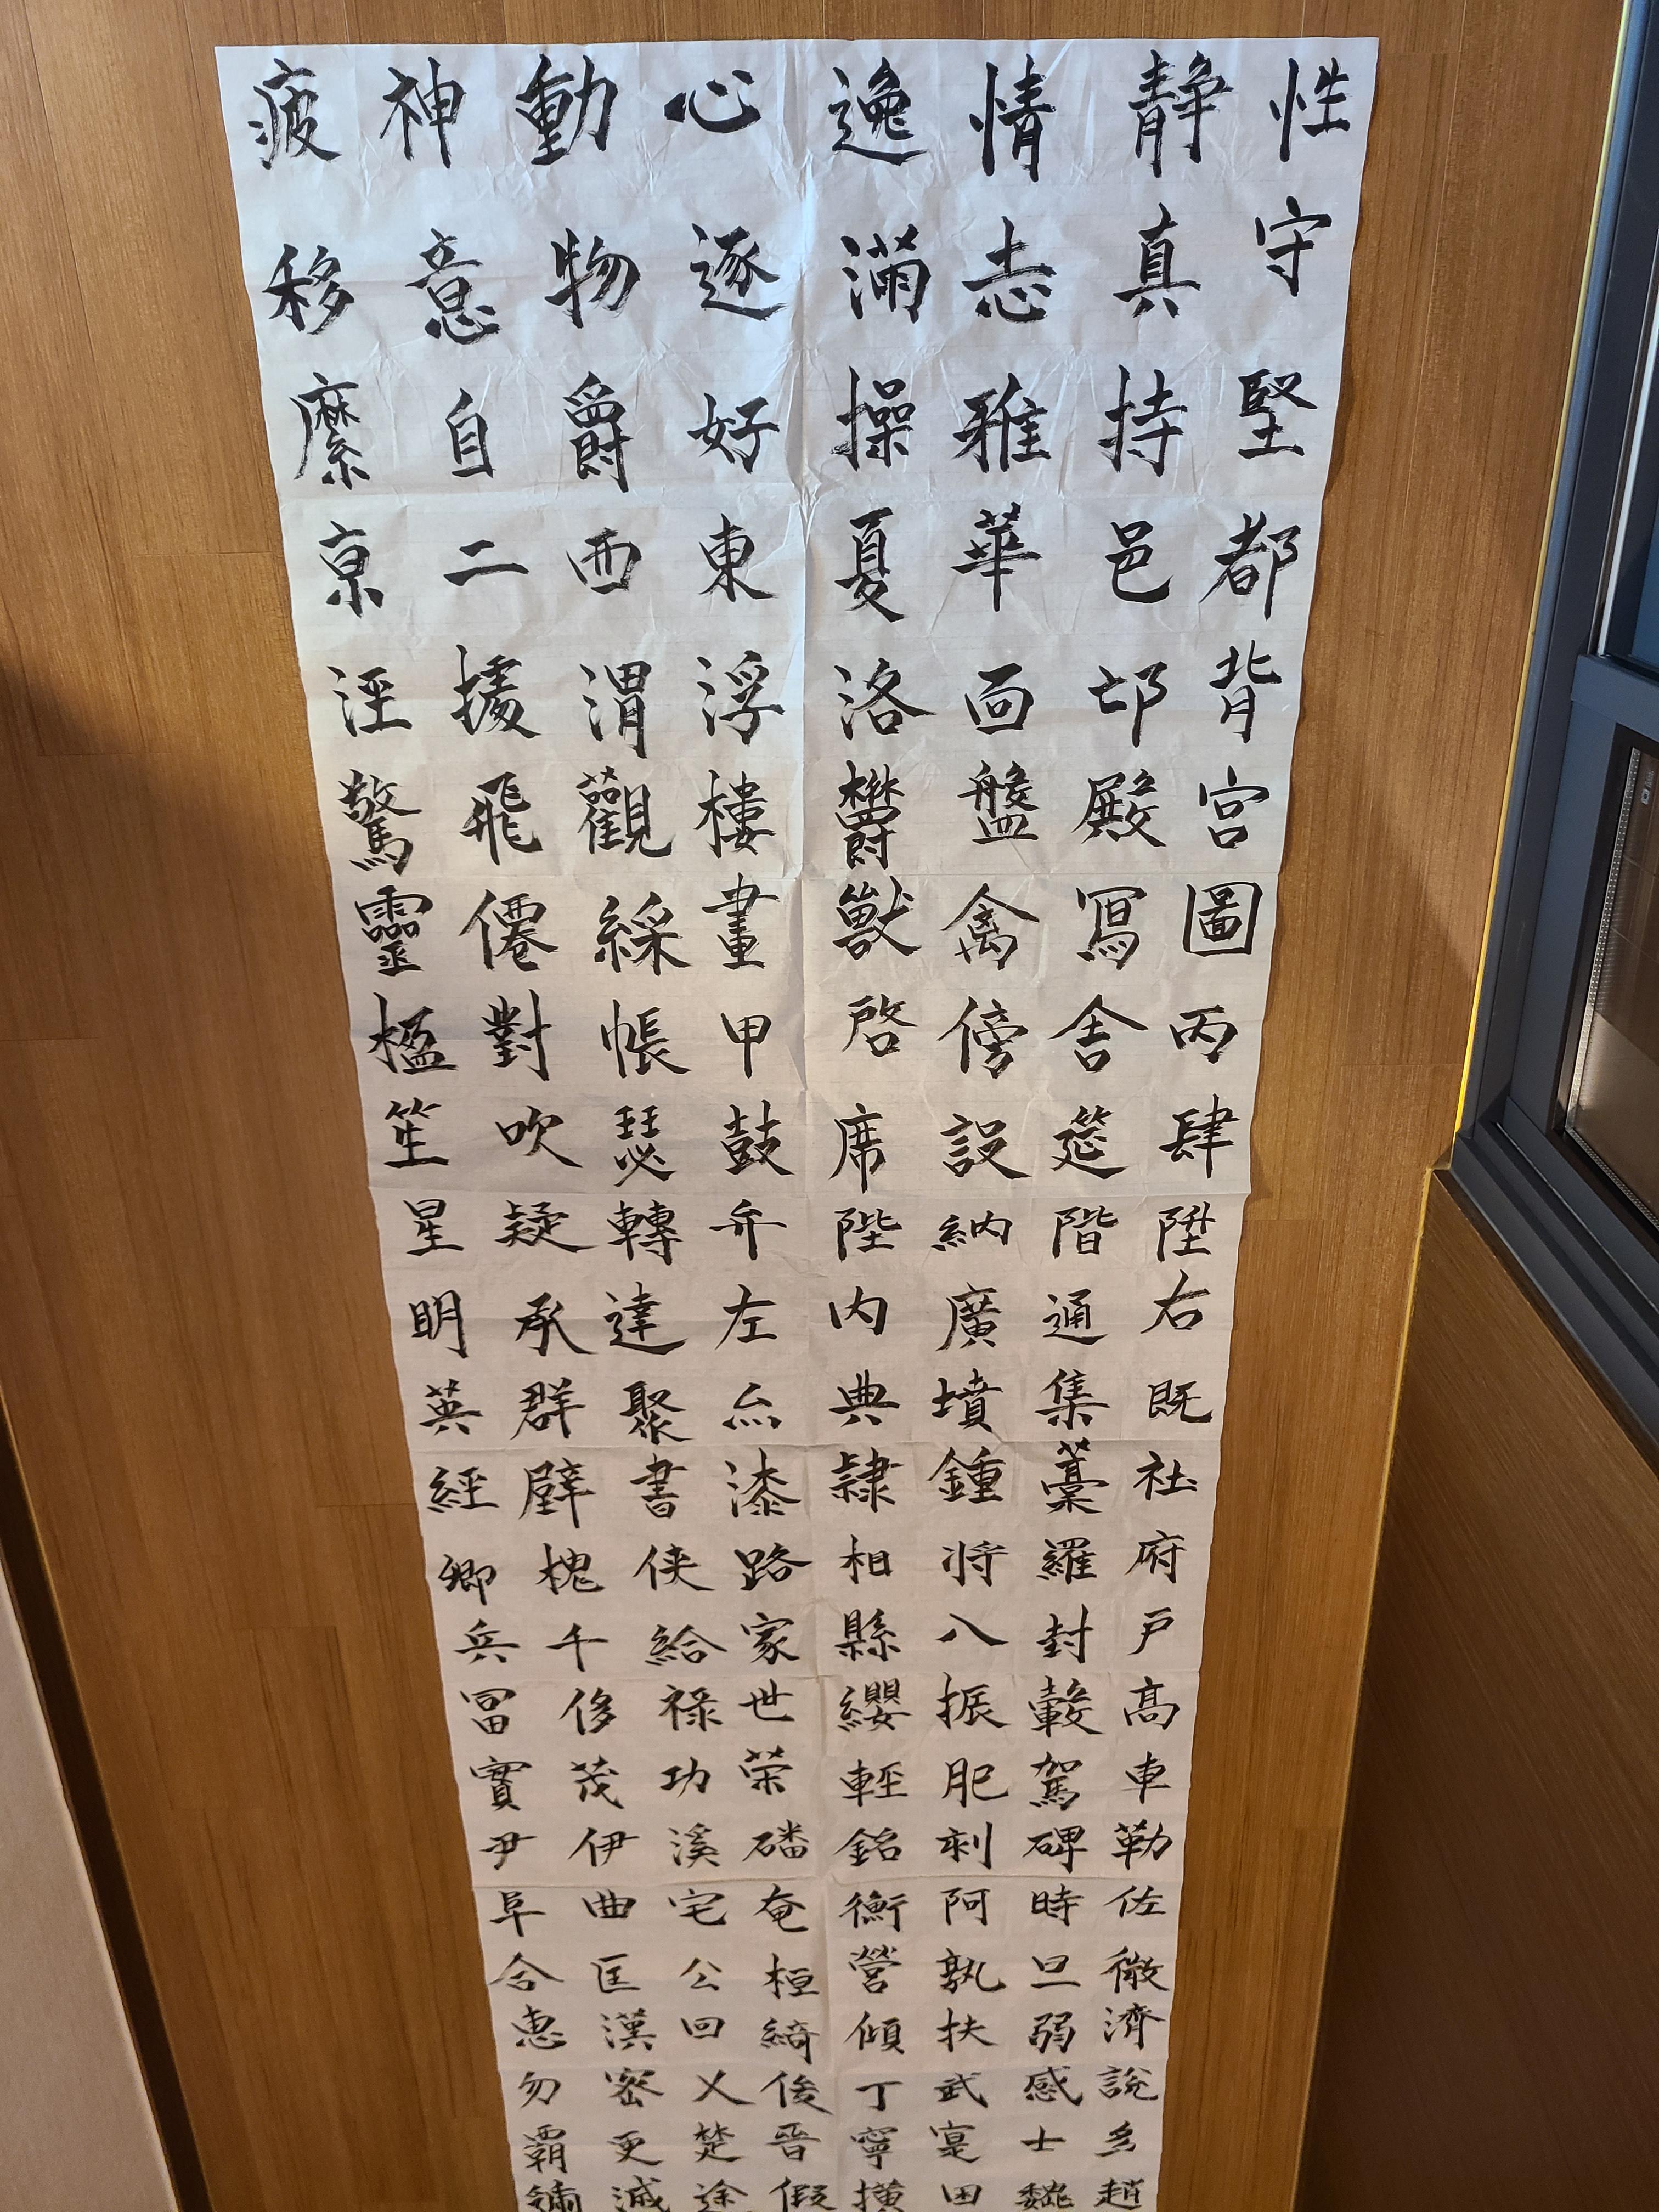 性靜情逸心動神疲
守真志滿逐物意移
堅持雅操好爵自縻
都邑華夏東西二京
背邙面洛浮渭據涇
宮殿盤鬱樓觀飛驚
圖寫禽獸畫綵僊靈
丙舍傍啓甲帳對楹
肆筵設席鼓瑟吹笙
陞階納陛弁轉疑星
右通廣內左達承明
既集墳典亦聚群英
杜稾鍾隸漆書壁經
府羅將相路俠槐卿
戶封八縣家給千兵
高轂振纓世祿侈富
車駕肥輕榮功茂實
勒碑刻銘磻溪伊尹
佐時阿衡奄宅曲阜
微旦孰營桓公匡合
濟弱扶傾綺回漢惠
說感武丁俊乂密勿
多士寔寧晉楚更霸
趙魏田橫假途滅